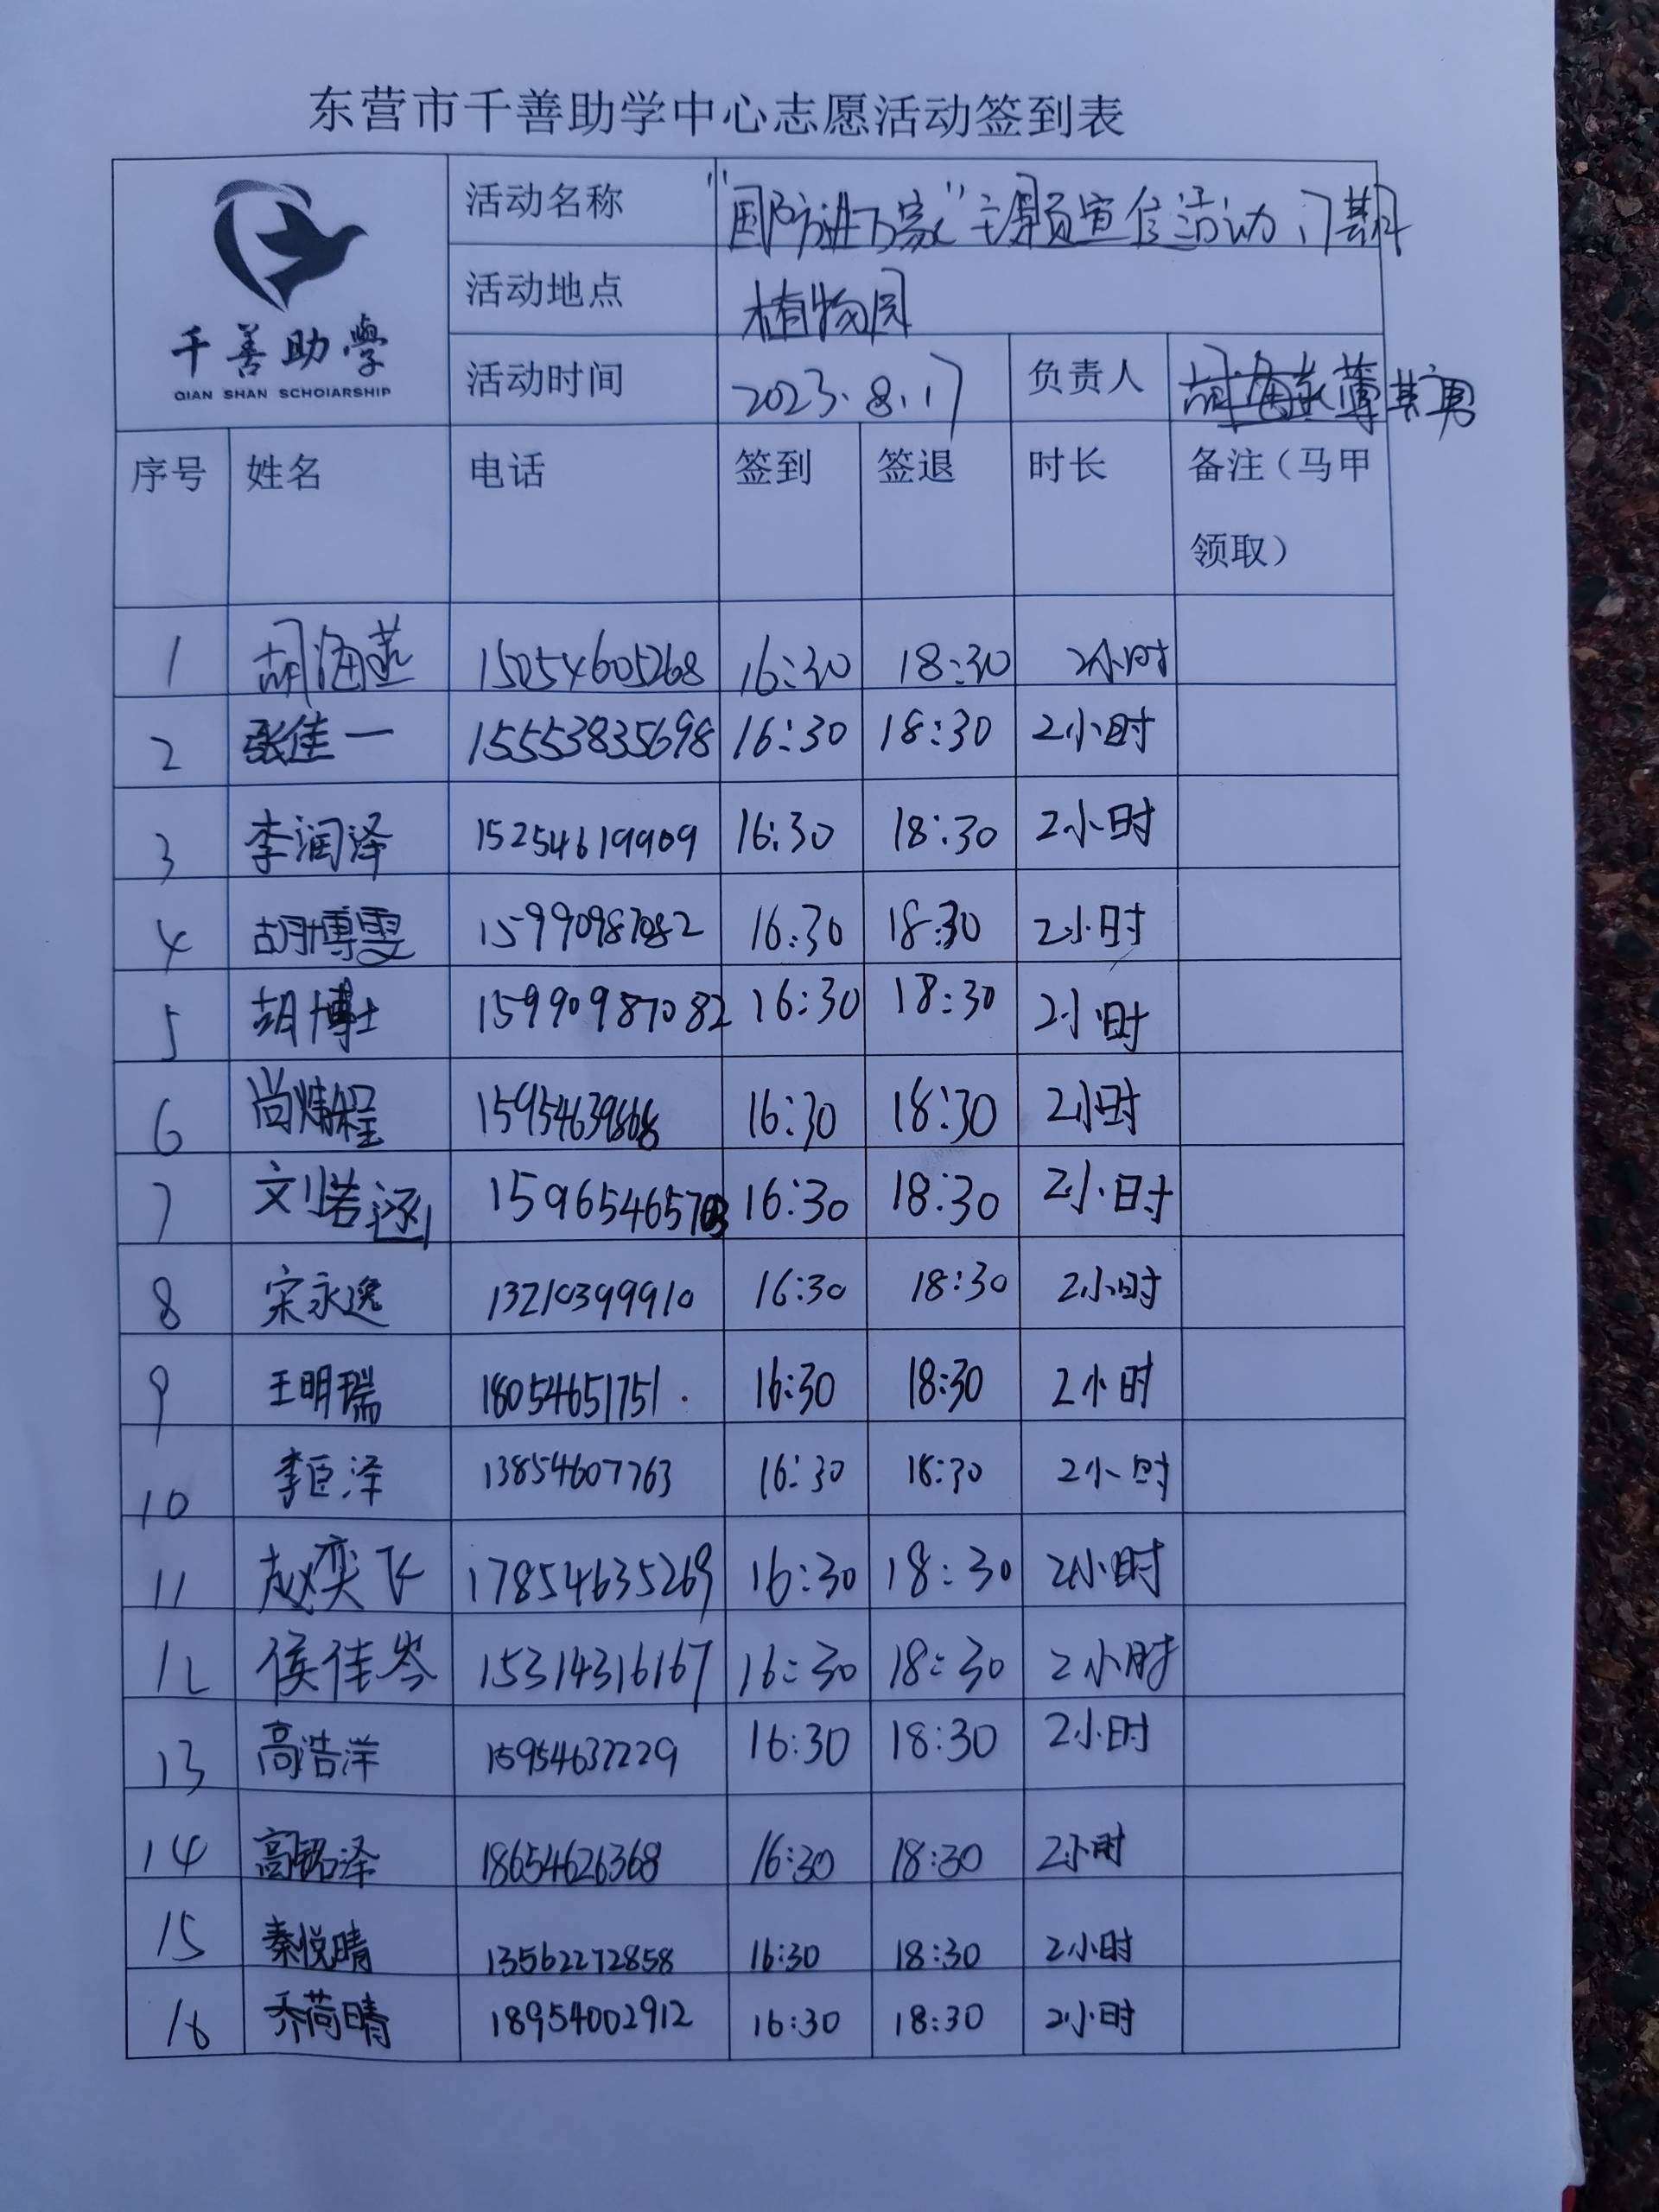 东营市千善助学中心志愿活动签到表
千善助學
QIAN SHAN SCHOIARSHIP
活动名称 "国防进万家"主题宣传活动
活动地点 植物园
活动时间 2023.8.17 负责人
序号 姓名 电话 签到 签退 时长 备注（马甲领取）
1 胡海燕 15054605268 16:30 18:30 2小时
2 张佳一 15553835698 16:30 18:30 2小时
3 李润泽 15254619909 16:30 18:30 2小时
4 胡博雯 15990987082 16:30 18:30 2小时
5 胡博士 15990987082 16:30 18:30 2小时
6 尚炜程 16:30 18:30 2小时
7 刘若涵 16:30 18:30 2小时
8 宋永逸 13210399910 16:30 18:30 2小时
9 王明瑞 18054651751 16:30 18:30 2小时
10 李臣泽 13854607763 16:30 18:30 2小时
11 赵奕飞 17854635269 16:30 18:30 2小时
12 侯佳岑 15314316167 16:30 18:30 2小时
13 高浩洋 15954637229 16:30 18:30 2小时
14 高铭泽 18654626368 16:30 18:30 2小时
15 秦悦晴 13562272858 16:30 18:30 2小时
16 乔荷晴 18954002912 16:30 18:30 2小时